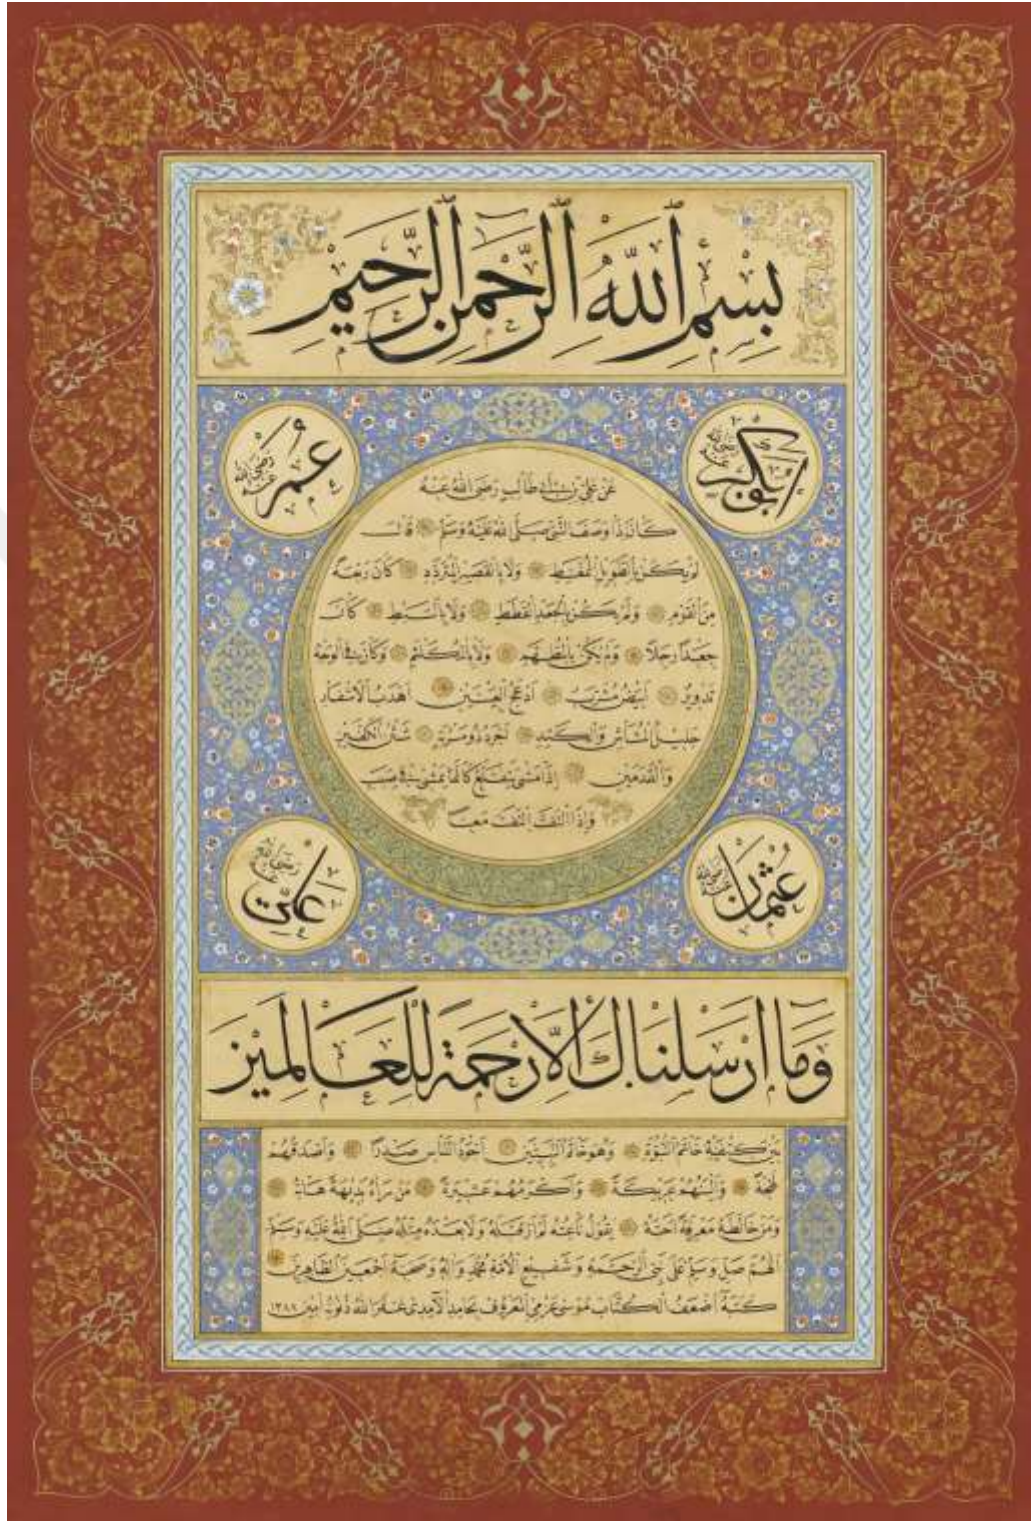 بِسْمِ اللّٰهِ الرَّحْمٰنِ الرَّحِيمِ
ابوبكر رضي الله عنه
عُمَر رَضِيَ الله عنه
عَنْ عَلِيِّ بْنِ اَبِي طَالِبٍ رَضِيَ اللّٰهُ عَنْهُ
كَانَ اِذَا وَصَفَ النَّبِيَّ صَلَّى اللّٰهُ عَلَيْهِ وَسَلَّمَ قَالَ
لَمْ يَكُنْ بِالطَّوِيلِ الْمُمَغَّطِ وَلَا بِالْقَصِيرِ الْمُتَرَدِّدِ كَانَ رَبْعَةً
مِنَ الْقَوْمِ وَلَمْ يَكُنْ بِالْجَعْدِ الْقَطَطِ وَلَا بِالسَّبِطِ كَانَ
جَعْدًا رَجِلًا وَلَمْ يَكُنْ بِالْمُطَهَّمِ وَلَا بِالْمُكَلْثَمِ وَكَانَ فِي الْوَجْهِ
تَدْوِيرٌ اَبْيَضُ مُشْرَبٌ اَدْعَجُ الْعَيْنَيْنِ اَهْدَبُ الْاَشْفَارِ
جَلِيلُ الْمُشَاشِ وَالْكَتَدِ اَجْرَدُ ذُو مَسْرُبَةٍ شَثْنُ الْكَفَّيْنِ
وَالْقَدَمَيْنِ اِذَا مَشٰى يَتَقَلَّعُ كَاَنَّمَا يَمْشِي فِي صَبَبٍ
وَاِذَا الْتَفَتَ الْتَفَتَ مَعًا
عُثْمَان رضي الله عنه
عَلِيّ رضي الله عنه
وَمَا اَرْسَلْنَاكَ اِلَّا رَحْمَةً لِلْعَالَمِينَ
بَيْنَ كَتِفَيْهِ خَاتَمُ النُّبُوَّةِ وَهُوَ خَاتَمُ النَّبِيِّينَ اَجْوَدُ النَّاسِ صَدْرًا وَاَصْدَقُهُمْ
لَهْجَةً وَاَلْيَنُهُمْ عَرِيكَةً وَاَكْرَمُهُمْ عَشِيرَةً مَنْ رَآهُ بَدِيهَةً هَابَهُ
وَمَنْ خَالَطَهُ مَعْرِفَةً اَحَبَّهُ يَقُولُ نَاعِتُهُ لَمْ اَرَ قَبْلَهُ وَلَا بَعْدَهُ مِثْلَهُ صَلَّى اللّٰهُ عَلَيْهِ وَسَلَّمَ
اَللّٰهُمَّ صَلِّ وَسَلِّمْ عَلٰى نَبِيِّ الرَّحْمَةِ وَشَفِيعِ الْاُمَّةِ مُحَمَّدٍ وَآلِهِ وَصَحْبِهِ اَجْمَعِينَ الطَّاهِرِينَ
كَتَبَهُ اَضْعَفُ الْكُتَّابِ مُوسٰى عَزْمِي الْمَعْرُوفُ بِحَامِدِ الْآمِدِي غَفَرَ اللّٰهُ ذُنُوبَهُ آمِين